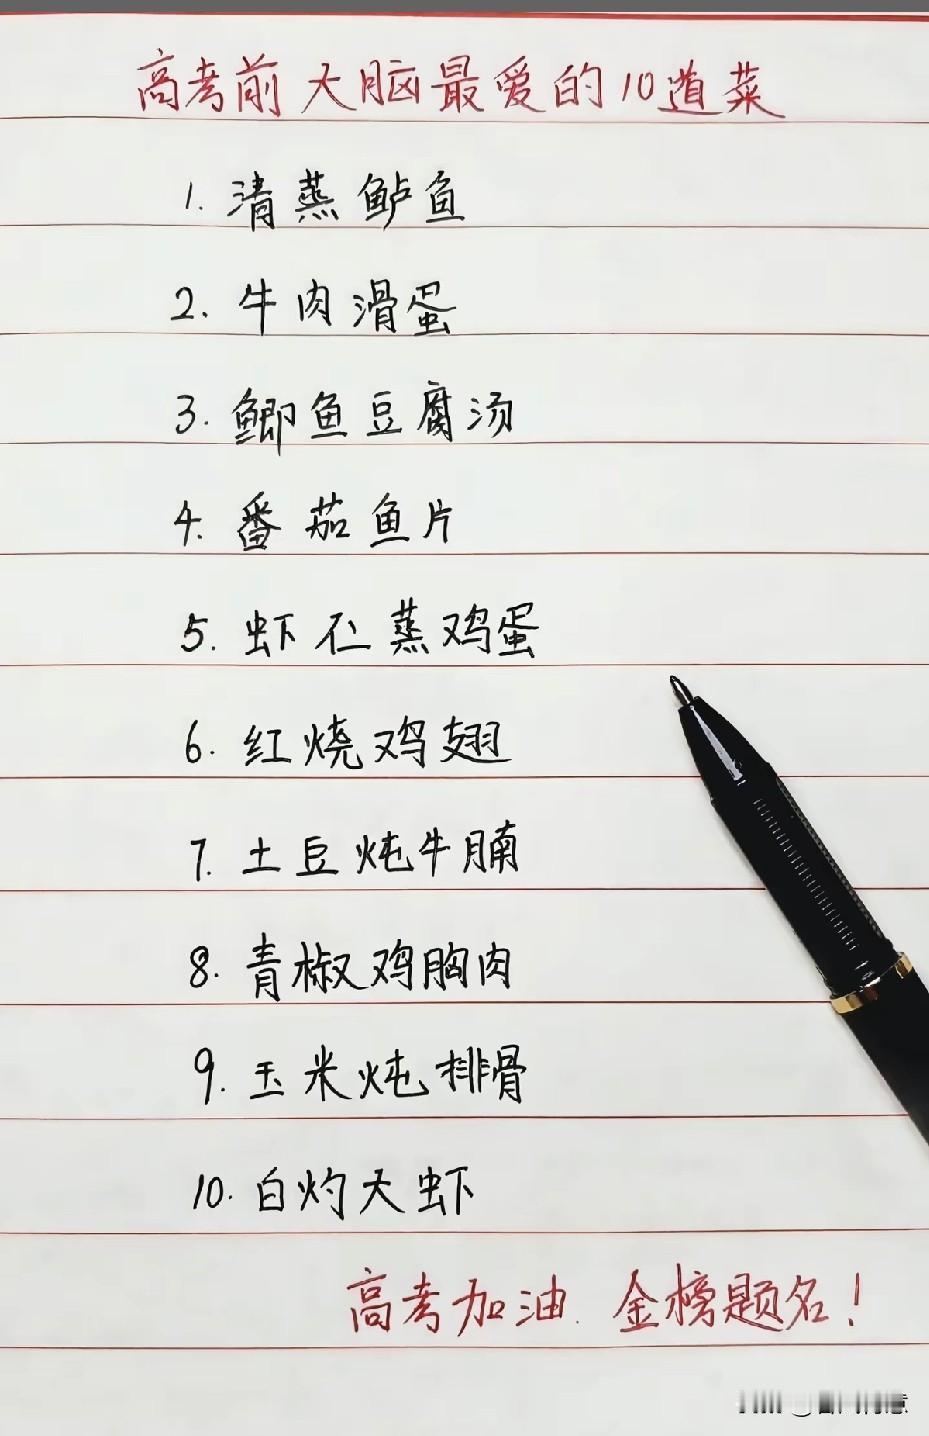 高考前大脑最爱的10道菜
1. 清蒸鲈鱼
2. 牛肉滑蛋
3. 鲫鱼豆腐汤
4. 番茄鱼片
5. 虾仁蒸鸡蛋
6. 红烧鸡翅
7. 土豆炖牛腩
8. 青椒鸡胸肉
9. 玉米炖排骨
10. 白灼大虾
高考加油. 金榜题名!